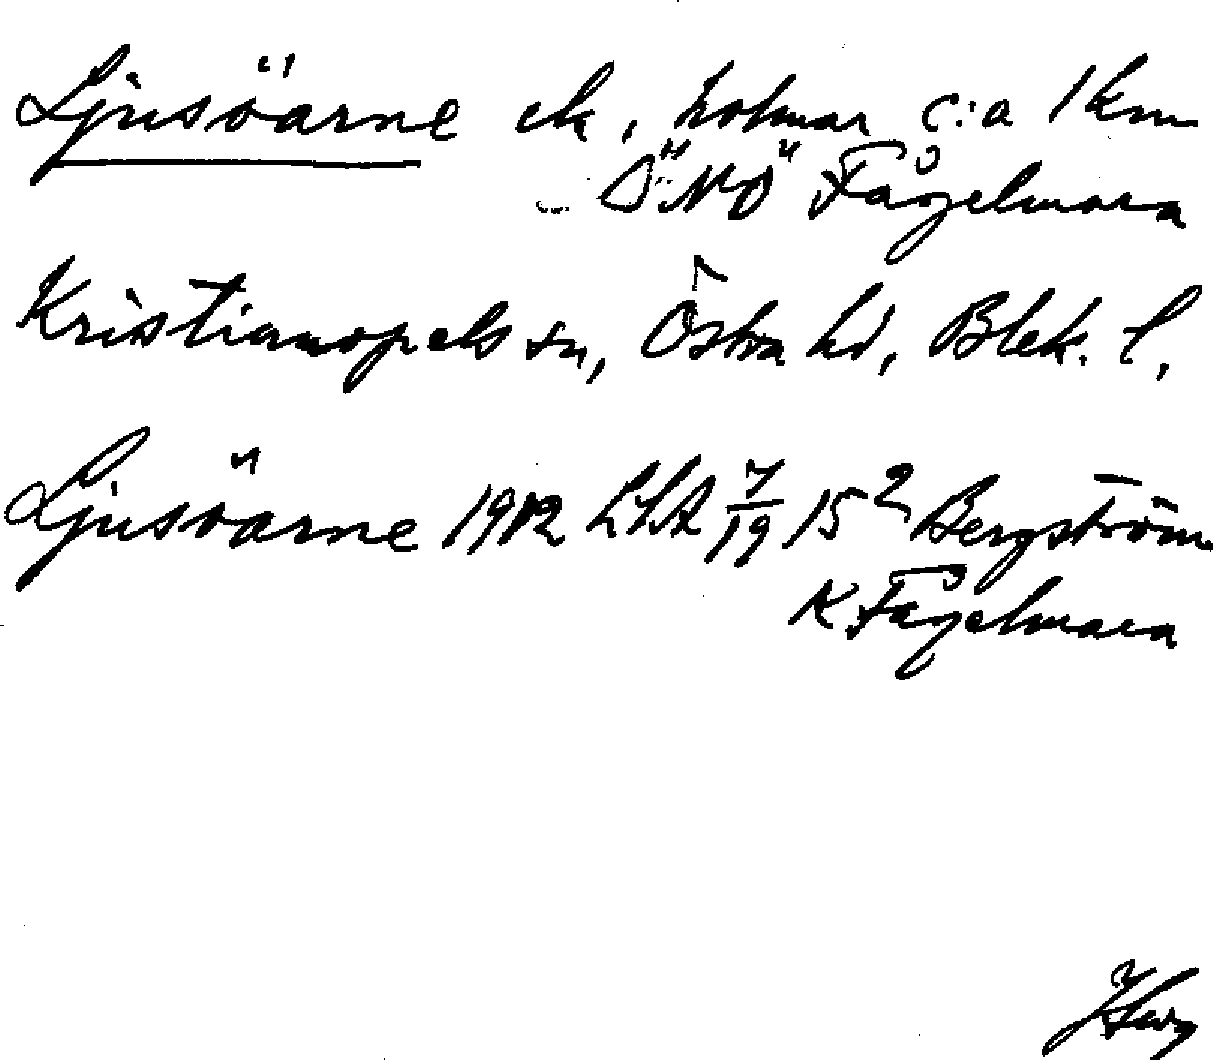 Ljusöarne ek, holmar c:a 1 km
ÖNÖ Fågelmara
Kristianopels sn, Östra hd, Blek. l.
Ljusöarne 1912 LSA 7/19 15² Bergström
K Fågelmara